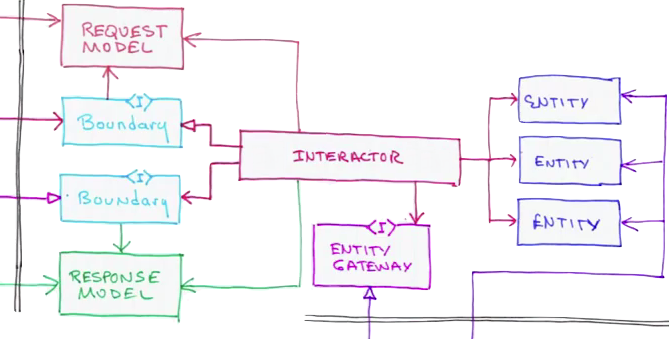 REQUEST
MODEL
<I>
Boundary
<I>
Boundary
RESPONSE
MODEL
INTERACTOR
<I>
ENTITY
GATEWAY
ENTITY
ENTITY
ENTITY